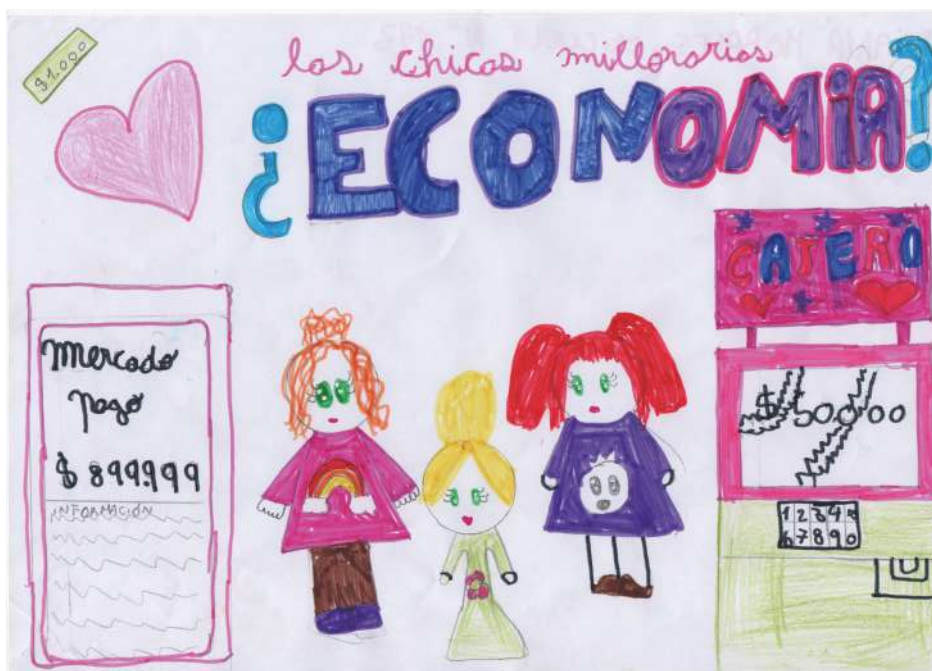 $1.000
las chicas millonarias
¿ECONOMiA?
CAJERO
mercado
pago
$ 899.999
INFORMACIÓN
$50.000
1 2 3 4 5
6 7 8 9 0